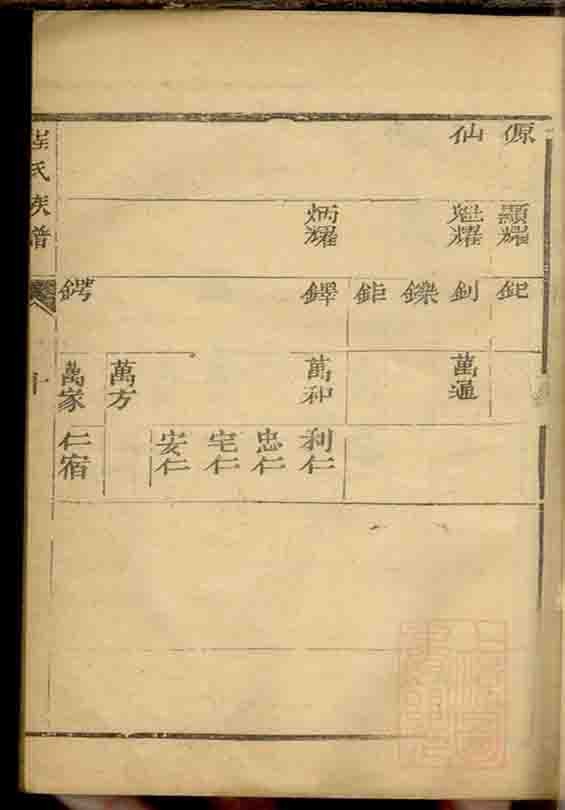 源
仙
顯耀
魁耀
炳耀
釲
釗
鑠
鉅
鐸
鍔
萬通
萬和
萬方
萬家
利仁
忠仁
宅仁
安仁
仁宿
氏族譜
十